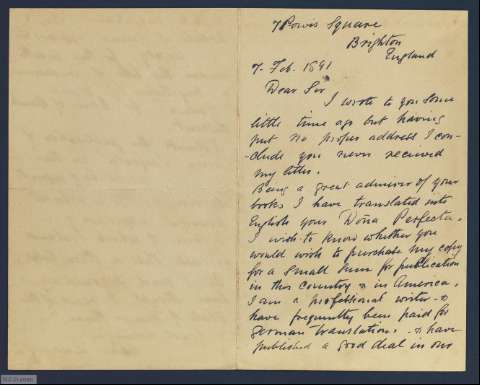 7 Powis Square
Brighton
England
7. Feb. 1891
Dear Sir
I wrote to you some
little time ago but having
put no proper address I con-
-clude you never received
my letter.
Being a great admirer of your
books I have translated into
English your Doña Perfecta.
I wish to know whether you
would wish to purchase my copy
for a small sum for publication
in this country & in America.
I am a professional writer & 
have frequently been paid for
German translations. & have
published a good deal in our